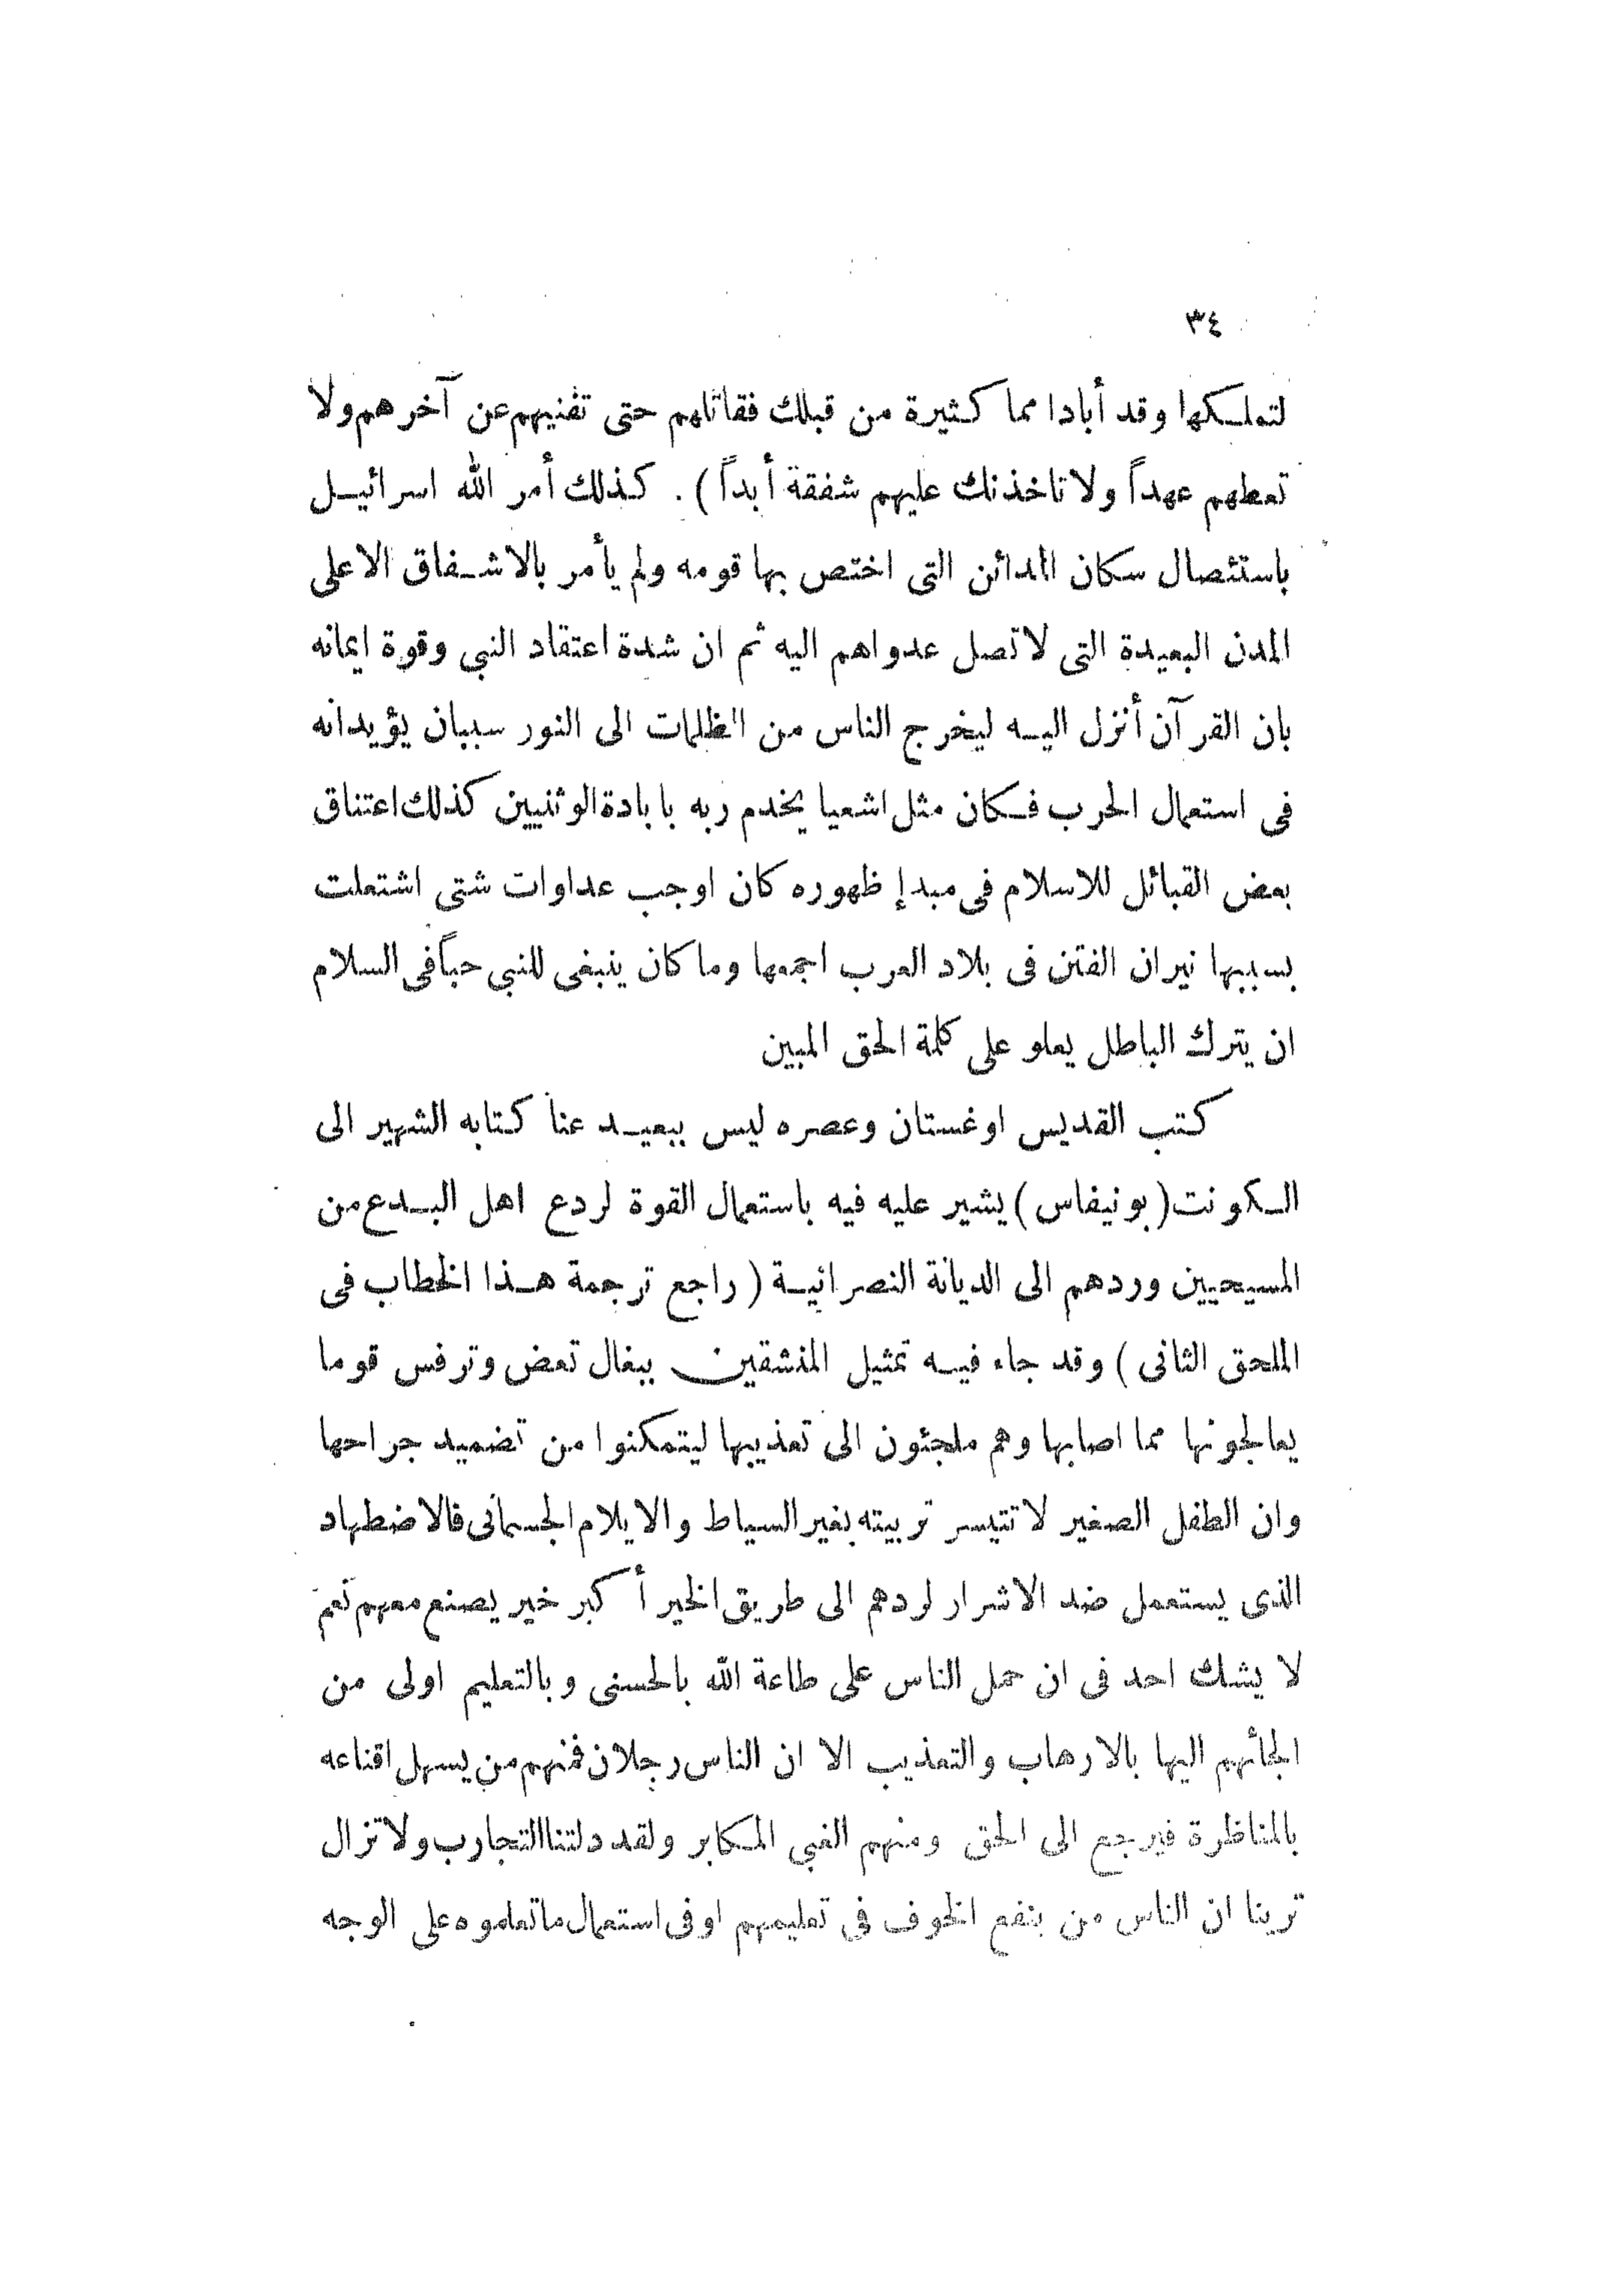 ٣٤
لتملكها وقد أبادا مما كثيرة من قبلك فقاتلهم حتى تفنيهم عن آخرهم ولا
تعطهم عهداً ولا تاخذنك عليهم شفقة أبداً ) . كذلك أمر الله اسرائيل
باستئصال سكان المدائن التى اختص بها قومه ولم يأمر بالاشفاق الا على
المدن البعيدة التى لا تصل عدواهم اليه ثم ان شدة اعتقاد النبي وقوة ايمانه
بان القرآن أنزل اليه ليخرج الناس من الظلمات الى النور سببان يؤيدانه
فى استعمال الحرب فكان مثل اشعيا يخدم ربه بابادة الوثنيين كذلك اعتناق
بعض القبائل للاسلام فى مبدإ ظهوره كان اوجب عداوات شتى اشتعلت
بسببها نيران الفتن فى بلاد العرب اجمعها وما كان ينبغى للنبي حباً فى السلام
ان يترك الباطل يعلو على كلمة الحق المبين
كتب القديس اوغستان وعصره ليس ببعيد عنا كتابه الشهير الى
الكونت (بونيفاس) يشير عليه فيه باستعمال القوة لردع اهل البدع من
المسيحيين وردهم الى الديانة النصرانية ( راجع ترجمة هذا الخطاب فى
الملحق الثانى ) وقد جاء فيه تمثيل المنشقين ببغال تعض وترفس قوما
يعالجونها مما اصابها وهم ملجئون الى تعذيبها ليتمكنوا من تضميد جراحها
وان الطفل الصغير لا تتيسر تربيته بغير السياط والايلام الجسمانى فالاضطهاد
الذى يستعمل ضد الاشرار لردهم الى طريق الخير أكبر خير يصنع معهم نعم
لا يشك احد فى ان حمل الناس على طاعة الله بالحسنى وبالتعليم اولى من
الجأئهم اليها بالارهاب والتعذيب الا ان الناس رجلان فمنهم من يسهل اقناعه
بالمناظرة فيرجع الى الحق ومنهم الغبي المكابر ولقد دلتنا التجارب ولا تزال
ترينا ان الناس من ينفع الخوف فى تعليمهم او فى استعمال ما تعلموه على الوجه